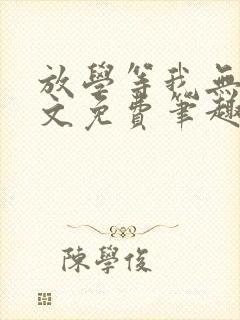 放學等我無
文免費筆趣
陳學俊